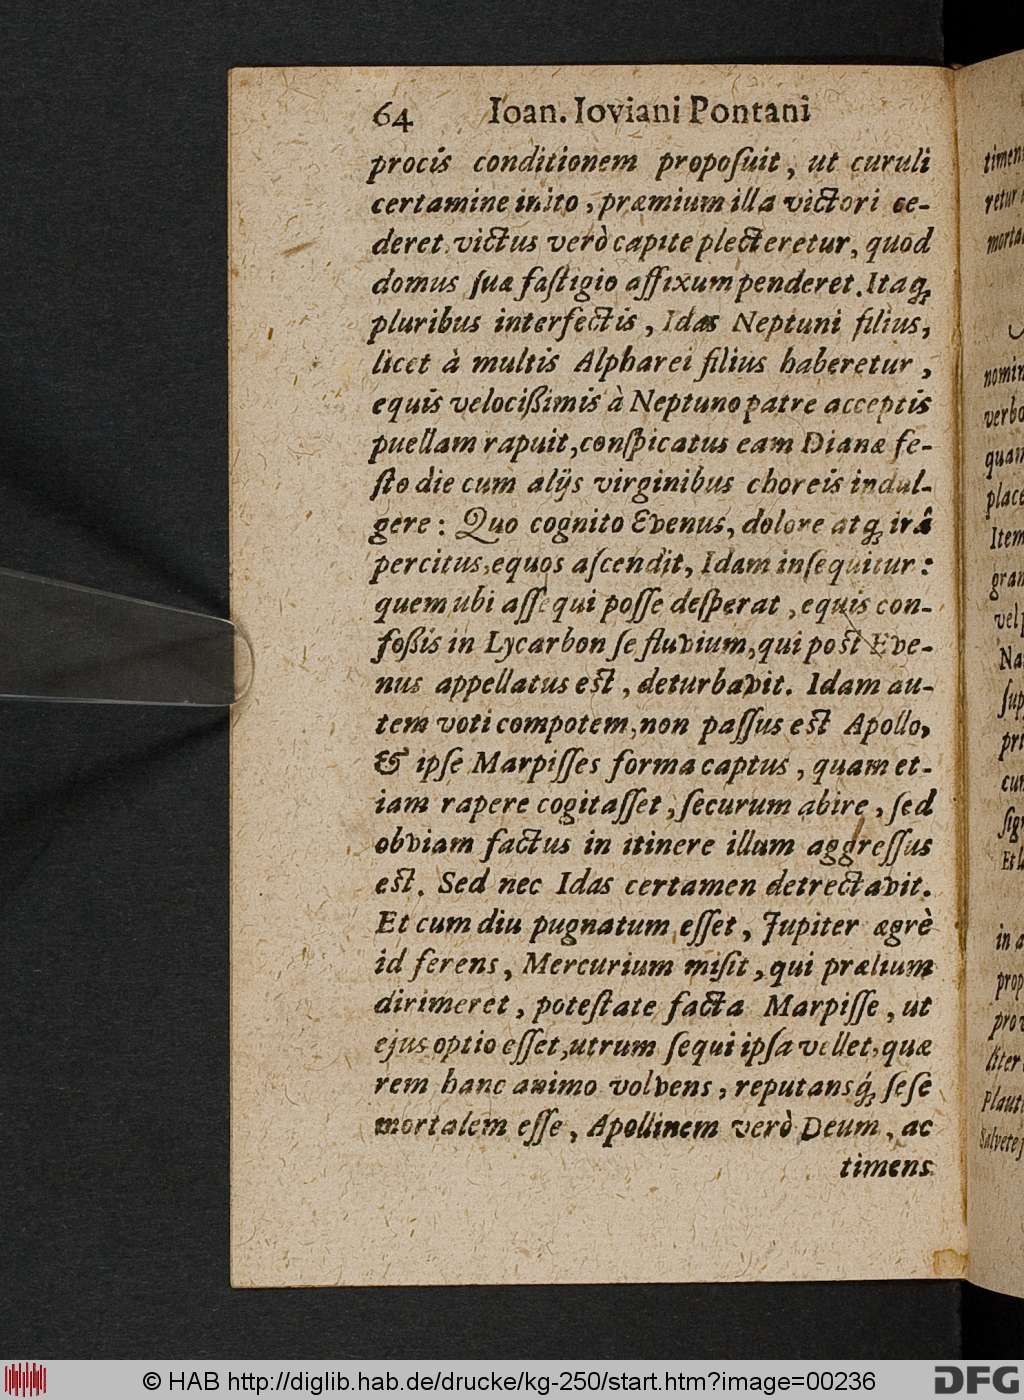 64 Ioan. Ioviani Pontani
procis conditionem proposuit, ut curuli
certamine inito, præmium illa victori ce-
deret, victus verò capite plecteretur, quod
domus suæ fastigio affixum penderet. Itaq́;
pluribus interfectis, Idas Neptuni filius,
licet à multis Alpharei filius haberetur,
equis velocißimis à Neptuno patre acceptis
puellam rapuit, conspicatus eam Dianæ fe-
sto die cum alijs virginibus choreis indul-
gere: Quo cognito Evenus, dolore atq; irâ
percitus, equos ascendit, Idam insequitur:
quem ubi assequi posse desperat, equis con-
foßis in Lycarbon se fluvium, qui post Eve-
nus appellatus est, deturbavit. Idam au-
tem voti compotem, non passus est Apollo,
& ipse Marpisses forma captus, quam et-
iam rapere cogitasset, securum abire, sed
obviam factus in itinere illum aggressus
est. Sed nec Idas certamen detrectavit.
Et cum diu pugnatum esset, Jupiter ægrè
id ferens, Mercurium misit, qui prælium
dirimeret, potestate facta Marpisse, ut
ejus optio esset, utrum sequi ipsa vellet, quæ
rem hanc animo volvens, reputansq́; sese
mortalem esse, Apollinem verò Deum, ac
timens
timen
retur
morta
nomin
verbo
quam
place
Item
gran
vel
Na
sup
pri
cur
sig
Et
in a
prop
prov
liter
Plaut
Salvete
© HAB http://diglib.hab.de/drucke/kg-250/start.htm?image=00236
DFG